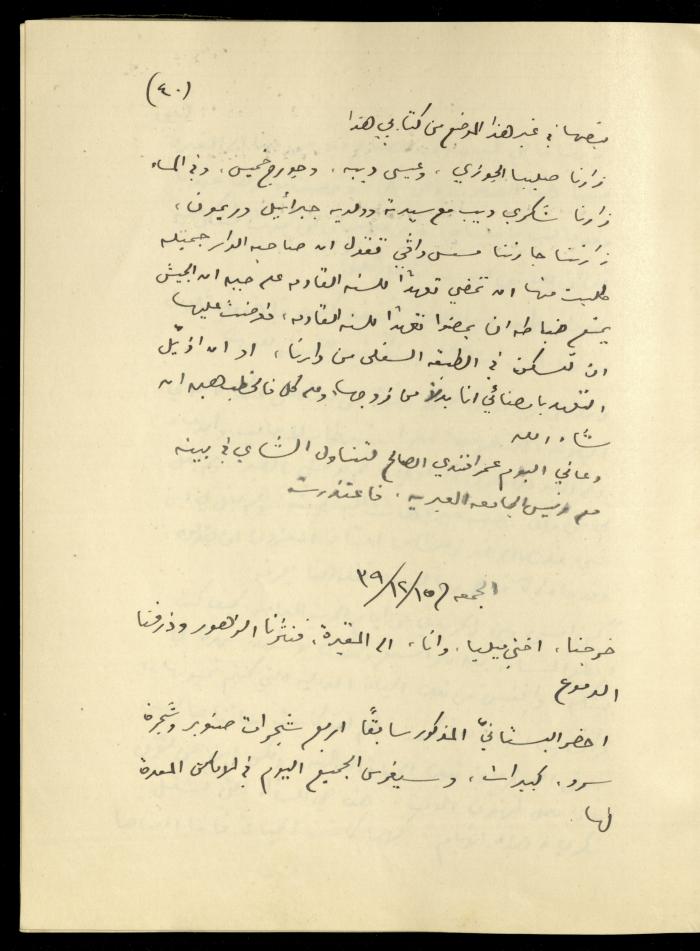 (٤٠)
بقصها في غير هذا الموضع من كتابي هذا
زارنا صليبا الجوزي، وعيسى ديبه، وجورج خميس، وفي المساء
زارنا شكري ديب مع سيدته وولديه جبرائيل وريمون،
زارتنا جارتنا مسس تقول ان صاحبة الدار جميله
طلبت منها ان تمضي تعهداً للسنه القادمه علم حيه ان الجيش
يمنع ضباطه ان يمضوا تعهداً للسنه القادمه، فعرضت عليها
ان تسكن في الطبقه السفلى من دارنا، او ان اذيّل
التعهد بامضائي انا بدلاً من زوجها، ومع كل فالخطب هين ان
شاء الله
دعاني اليوم عمر افندي الصالح لتناول الشاي في بيته
مع رئيس الجامعه العبريه، فاعتذرت
الجمعه في ٣٩/١٢/١٥
خرجنا، اختي ميليا، وانا، الى المقبرة، فنثرنا الزهور وذرفنا
الدموع
احضر البستانيّ المذكور سابقًا اربع شجرات صنوبر وشجرة
سرو، كبيرات، وسيغرس الجميع اليوم في الاماكن المعدة
لها.